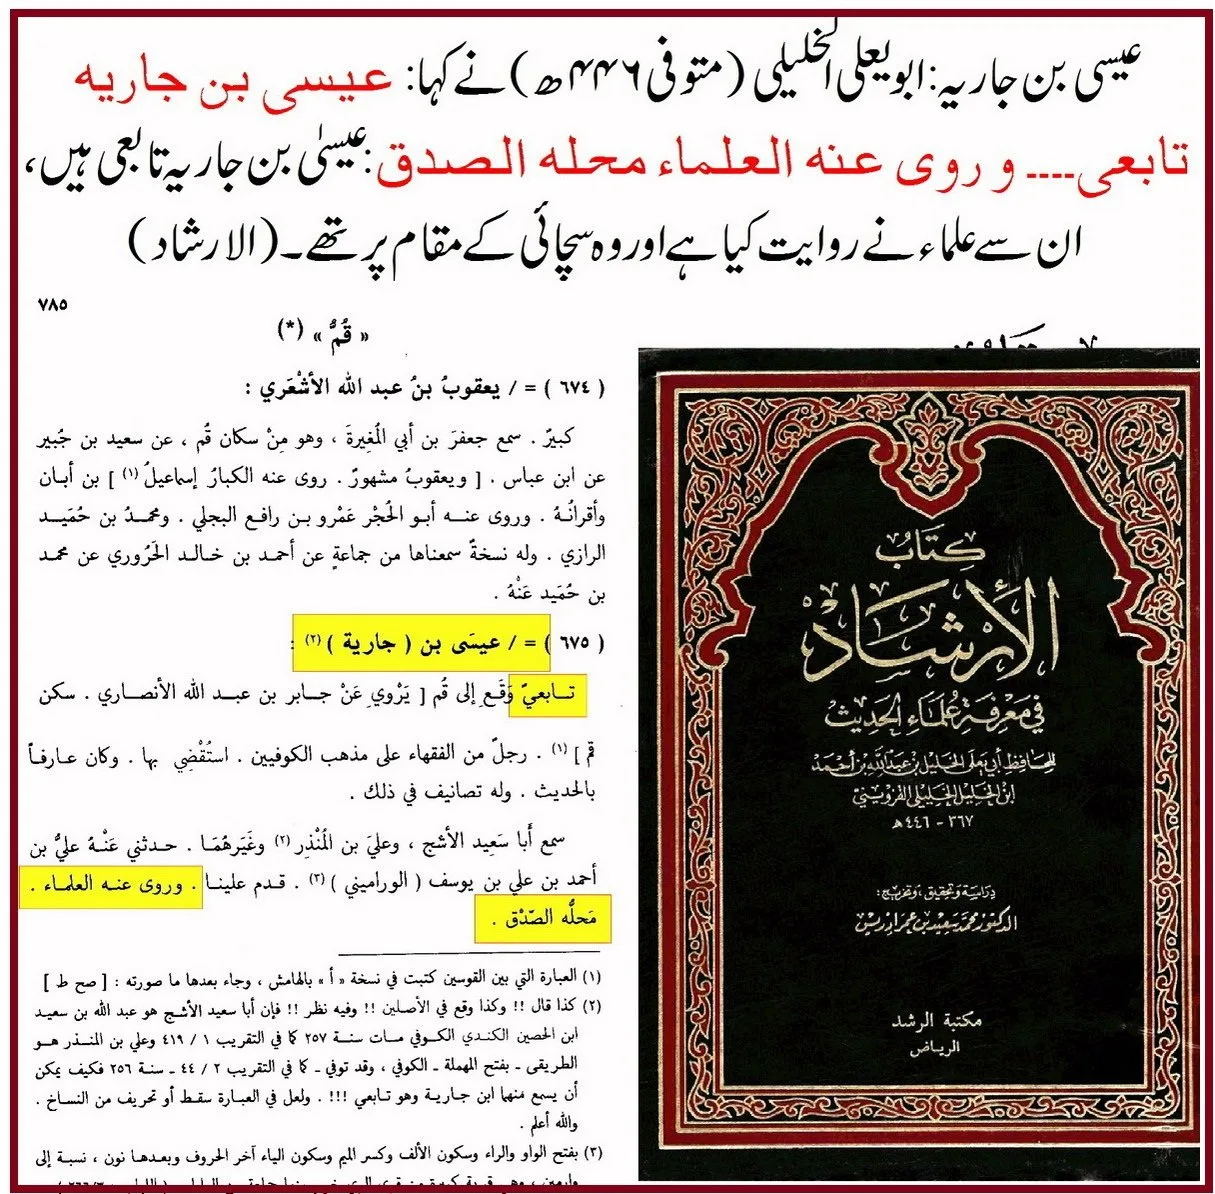 عیسی بن جاریہ: ابو یعلی الخلیلی (متوفی ۴۴۶ھ) نے کہا: عیسی بن جاریه
تابعی---- و روی عنه العلماء محله الصدق: عیسیٰ بن جاریہ تابعی ہیں،
ان سے علماء نے روایت کیا ہے اور وہ سچائی کے مقام پر تھے۔ (الارشاد)
٧٨٥
« قُمُّ » (*)
( ٦٧٤ ) = / يعقوبُ بنُ عبد الله الأشْعَري :
كبيرٌ . سمع جعفرَ بن أبي المُغِيرةَ ، وهو مِنْ سكان قُم ، عن سعيد بن جُبير
عن ابن عباس . [ ويعقوبُ مشهورٌ . روى عنه الكبارُ إسماعيلُ (١) ] بن أبان
وأقرانُهُ . وروى عنه أبو الحُجْر عَمْرو بن رافع البجلي . ومحمدُ بن حُمَيد
الرازي . وله نسخةٌ سمعناها من جماعةٍ عن أحمد بن خالد الحَرُوري عن محمد
بن حُمَيد عَنْهُ .
( ٦٧٥ ) = / عيسَى بن ( جارية ) (٢) :
تابعيٌّ وَقَع إلى قُم [ يَرْوي عَنْ جابر بن عبد الله الأنصاري . سكن
قم ] (١) . رجلٌ من الفقهاء على مذهب الكوفيين . استُقْضِي بها . وكان عارفاً
بالحديث . وله تصانيف في ذلك .
سمع أَبا سَعِيد الأشج ، وعليَ بن المُنْذر (٢) وغَيَرهُمَا . حدثني عَنْهُ عليُّ بن
أحمد بن علي بن يوسف ( الوراميني ) (٣) . قدم علينا . وروى عنه العلماء .
مَحلُّه الصّدْق .
(١) العبارة التي بين القوسين كتبت في نسخة « أ » بالهامش ، وجاء بعدها ما صورته : [ صح ط ]
(٢) كذا قال !! وكذا وقع في الأصلين !! وفيه نظر !! فإن أبا سعيد الأشج هو عبد الله بن سعيد
ابن الحصين الكندي الكوفي مات سنة ٢٥٧ كما في التقريب ١ / ٤١٩ وعلي بن المنذر هو
الطريقى ـ بفتح المهملة ـ الكوفي ، وقد توفي ـ كما في التقريب ٢ / ٤٤ ـ سنة ٢٥٦ فكيف يمكن
أن يسمع منهما ابن جارية وهو تابعي !!! . ولعل في العبارة سقط أو تحريف من النساخ .
والله أعلم .
(٣) بفتح الواو والراء وسكون الألف وكسر الميم وسكون الياء آخر الحروف وبعدها نون ، نسبة إلى
كِتَابُ
الإرشاد
في معرفة علماء الحديث
للحافظ أبي يعلى الخليل بن عبد الله بن أحمد
ابن الخليل الخليلي القزويني
٣٦٧ - ٤٤٦ هـ
دراسة وتحقيق وتخريج:
الدكتور محمد سعيد بن عمر إدريس
مكتبة الرشد
الرياض